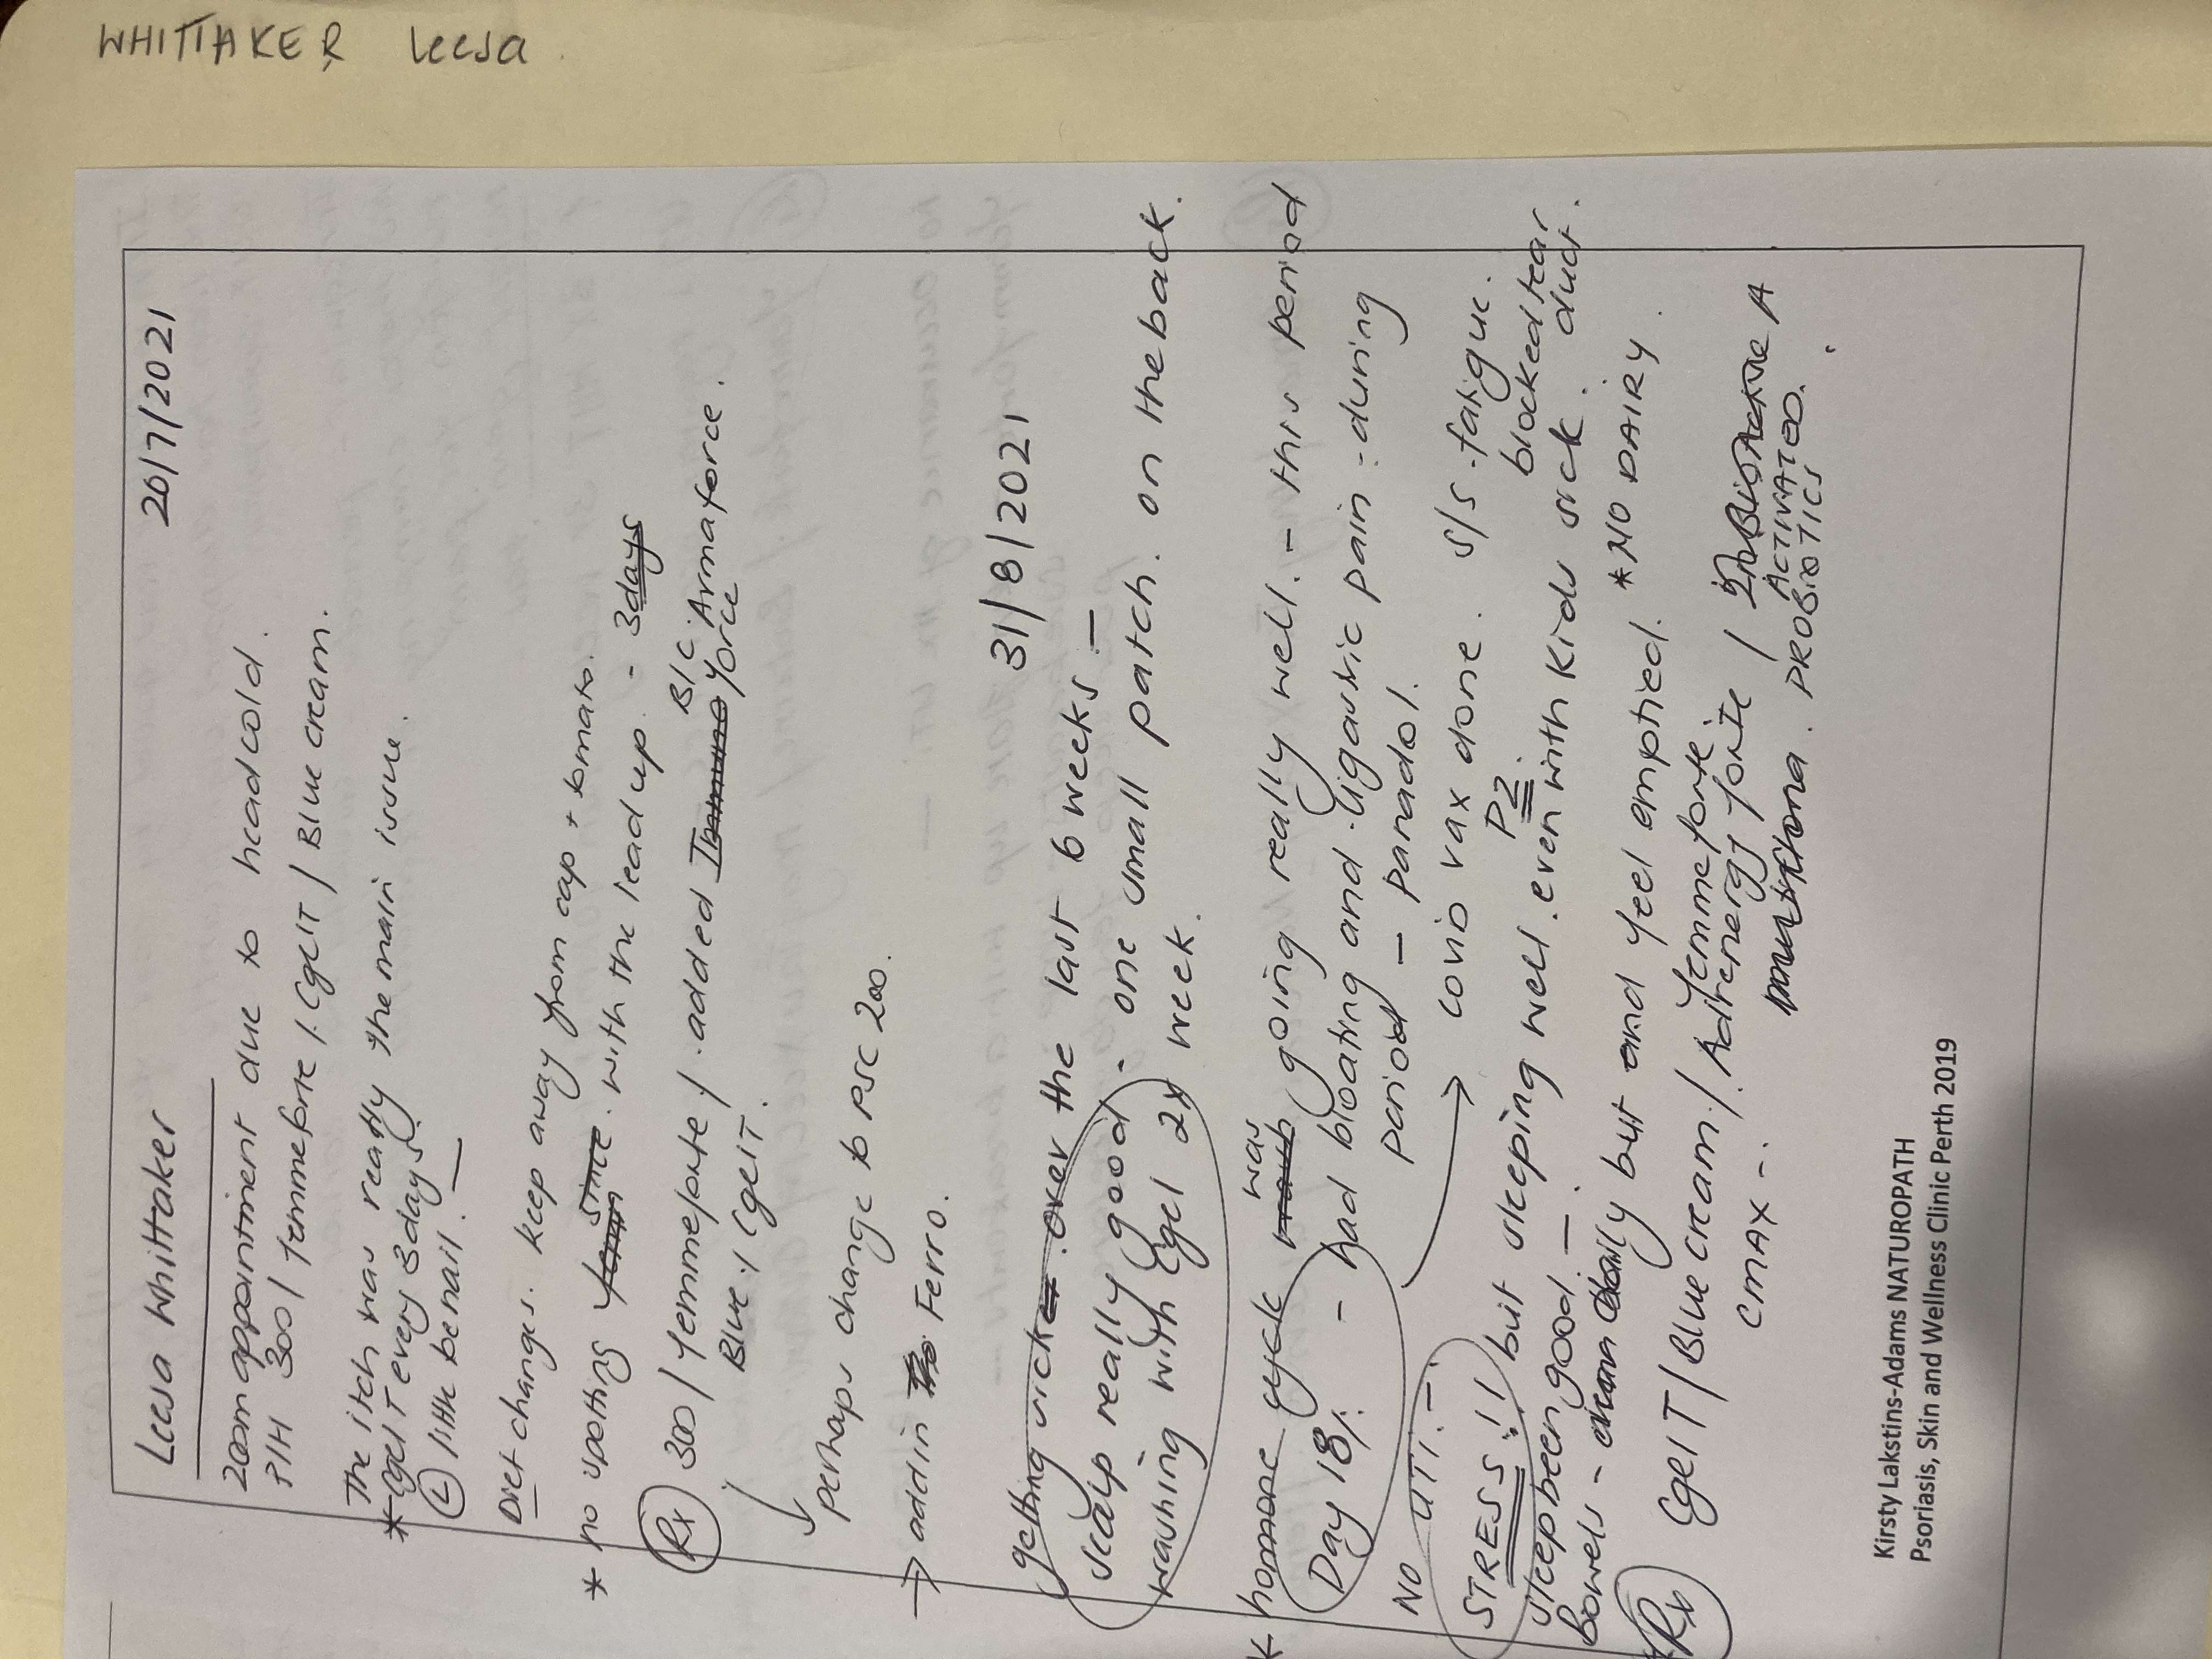 WHITTAKER Leesa
Leesa Whittaker 26/7/2021
zoom appointment due to head cold.
300 / femmeforte /. Cgel T / Blue cream.
The itch was really the main issue.
* Cgel T every 3 days.
(L) little be nail. —
Diet changes. keep away from cap + tomato.
* no spotting since. with the lead up. - 3 days
(Rx) 300 / femmeforte /. added B/C. Armaforce.
Blue. / Cgel T.
↓ perhaps change to psc 200.
→ add in Ferro.
31/8/2021
getting sick over the last 6 weeks —
scalp really good - one small patch. on the back.
washing with Cgel 2x week.
* hormone cycle was going really well. - this period
Day 18/. - had bloating and ligaustic pain - during
period — panadol.
NO UTI. -
→ covid vax done. s/s - fatigue.
PZ blocked tear duct.
STRESS!! but sleeping well. even with kids sick.
sleep been good. —
bowels - daily but and feel emptied. * NO DAIRY.
femmeforte
(Rx) Cgel T / Blue cream /. Adrenergy forte /
ACTIVATED
CMAX -. PROBIOTICS
Kirsty Lakstins-Adams NATUROPATH
Psoriasis, Skin and Wellness Clinic Perth 2019